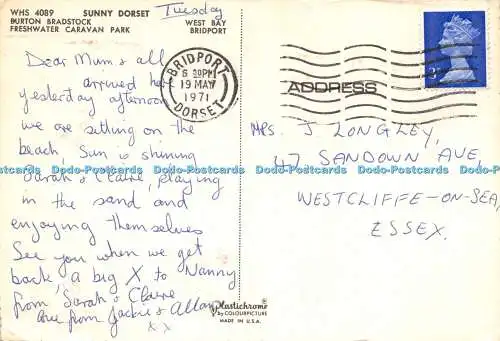 WHS 4089 SUNNY DORSET
BURTON BRADSTOCK WEST BAY
FRESHWATER CARAVAN PARK BRIDPORT
Tuesday
Dear Mum & all
arrived here
yesterday afternoon
we are sitting on the
beach, Sun is shining
Sarah & Claire, playing
in the sand and
enjoying themselves
See you when we get
back a big X to Nanny
from Sarah & Claire
love from Jackie & Allan
x x
BRIDPORT
19 MAY
1971
DORSET
ADDRESS
MRS. J LONGLEY,
47 SANDOWN AVE
WESTCLIFFE-ON-SEA,
ESSEX.
Plastichrome
by COLOURPICTURE
MADE IN U.S.A.
Dodo-Postcards Dodo-Postcards Dodo-Postcards Dodo-Postcards Dodo-Postcards